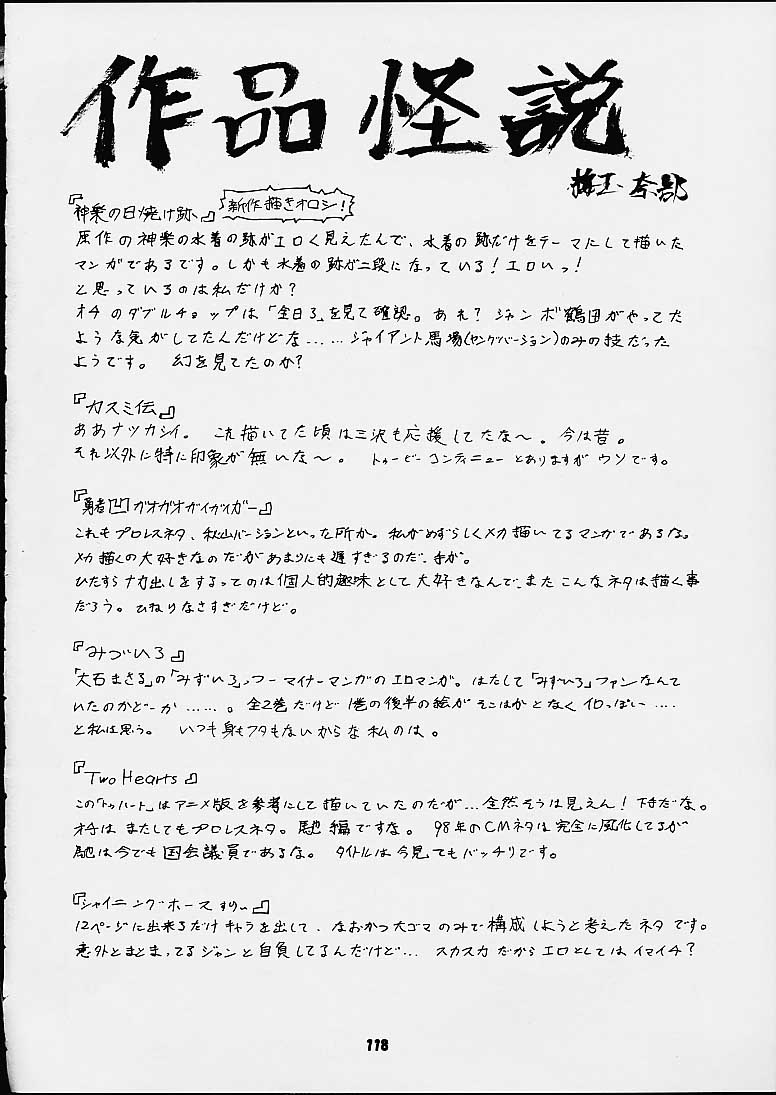 作品怪説
梅玉奈部
『神楽の日焼け跡、』
新作描きオロシ！
原作の神楽の水着の跡がエロく見えたんで、水着の跡だけをテーマにして描いた
マンガであるです。しかも水着の跡が二段になっている！エロいっ！
と思っているのは私だけか？
オチのダブルチョップは「全日ろ」を見て確認。あれ？ジャンボ鶴田がやってた
ような気がしてたんだけどな……ジャイアント馬場(ヤングバージョン)のみの技だった
ようです。 幻を見てたのか？
『カスミ伝』
ああナツカシイ。 これ描いてた頃は三沢も応援してたな〜。今は昔。
それ以外に特に印象が無いな〜。 トゥービーコンティニューとありますがウソです。
『勇者凹ガオガオガイガイガー』
これもプロレスネタ、秋山バージョンといった所か。私がめずらしくメカ描いてるマンガであるな。
メカ描くの大好きなのだがあまりにも遅すぎるのだ、手が。
ひたすらナカ出しをするってのは個人的趣味として大好きなんで、またこんなネタは描く事
だろう。ひねりなさすぎだけど。
『みづいろ』
「大石まさる」の「みずいろ」っつーマイナーマンガのエロマンガ。はたして「みずいろ」ファンなんて
いたのかどーか……。全2巻だけど1巻の後半の絵がそこはかとなくイロっぽい……
と私は思う。 いつも身もフタもないからな私のは。
『Two Hearts』
この「トゥハート」はアニメ版を参考にして描いていたのだが…全然そうは見えん！下手だな。
オチはまたしてもプロレスネタ。馳編ですな。 98年のCMネタは完全に風化してるが
馳は今でも国会議員であるな。 タイトルは今見てもバッチリです。
『シャイニングホース すりぃ』
12ページに出来るだけキャラを出して、なおかつ大ゴマのみで構成しようと考えたネタです。
意外とまとまってるジャンと自負してるんだけど… スカスカだからエロとしてはイマイチ？
118